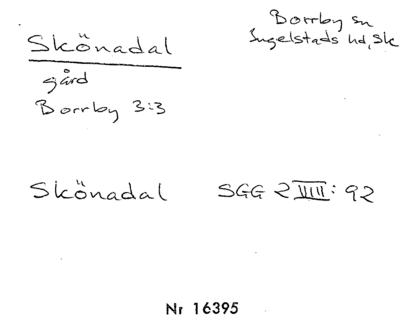 Skönadal
Borrby sn
Ingelstads hd, Sk
gård
Borrby 3:3
Skönadal SGG 2 VIII: 92
Nr 16395